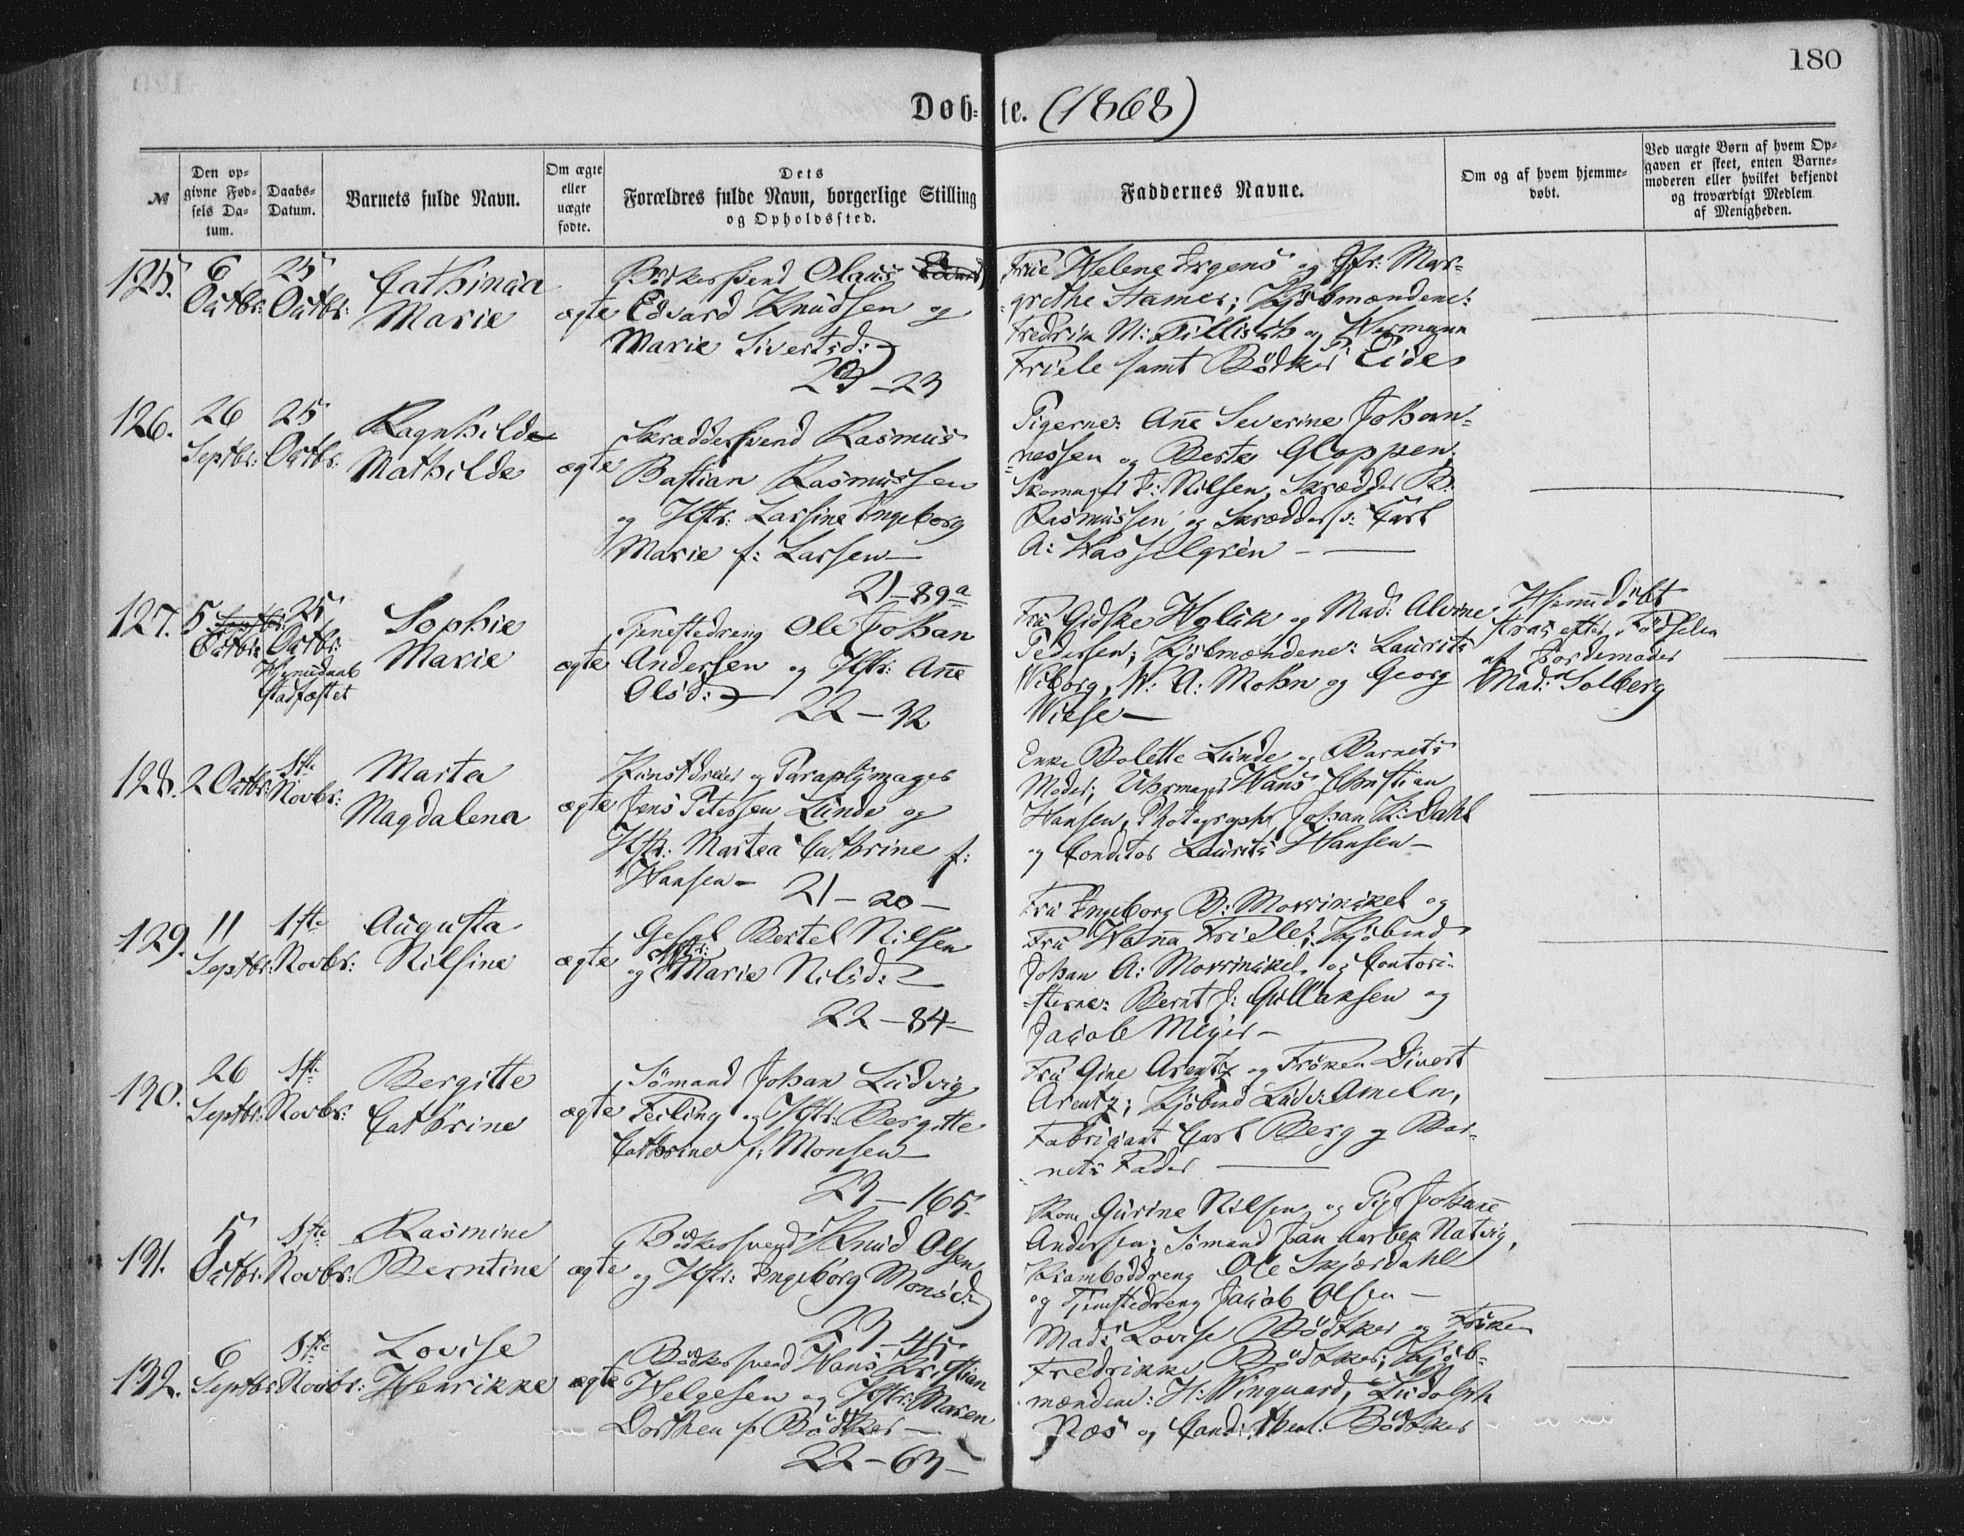 180
Døbte. (1868)
№
Den opgivne Fødsels Datum.
Daabs-Datum.
Barnets fulde Navn.
Om ægte eller uægte fødte.
Dets Forældres fulde Navn, borgerlige Stilling og Opholdssted.
Faddernes Navne.
Om og af hvem hjemmedøbt.
Ved uægte Børn af hvem Opgaven er skeet, enten Barnemoderen eller hvilket bekjendt og troværdigt Medlem af Menigheden.
125. 6 Octbr: 25 Octbr: Cathinca Marie ægte
Bødkersvend Olaus
Edvard Knudsen og
Marie Sivertsd:
23-23
Frue Helene Irgens og Jfr: Mar-
grethe Stamer; Kjøbmændene:
Fredrik M: Tillisch og Hermann
Friele samt Bødker Eide
126. 26 Septbr: 25 Octbr: Ragnhilde Mathilde ægte
Skræddersvend Rasmus
Bastian Rasmussen
og Hstr: Larsine Ingeborg
Marie f: Larsen
21-89a
Pigerne: Ane Severine Johan-
nessen og Berte Gloppen;
Skomager J: Nilsen, Skrædder R:
Rasmussen og Skrædders: Carl
A: Hasselgren
127. 5 Septbr: Octbr: 25 Octbr: Hjemmedaab stadfæstet Sophie Marie ægte
Tjenestedreng Ole Johan
Andersen og Hstr: Ane
Olsd:
22-32
Fru Gidske Wolik og Mad: Alvine
Pedersen; Kjøbmændene: Laurits
Wiborg, W: A: Mohn og Georg
Wiese
Hjemmedøbt
strax efter Fødselen
af Jordemoder
Mad: Solberg
128. 2 Octbr: 1ste Novbr: Marta Magdalena ægte
Kunstdreier og Paraplymager
Jens Petersen Lunde og
Hstr: Martea Cathrine f:
Hansen
21-20
Enke Bolette Lunde og Barnets
Moder; Uhrmager Hans Christian
Hansen, Photograph Johan K: Dahl
og Conditor Laurits Hansen
129. 11 Septbr: 1ste Novbr: Augusta Nilsine ægte
Bertel Nilsen
og Hstr: Marie Nilsd:
22-84
Fru Ingeborg B: Mowinckel og
Fru Hanna Friele; Kjøbmd
Johan A: Mowinckel, og Contori-
sterne: Bernt J: Gullaksen og
Jacob Meyer
130. 26 Septbr: 1ste Novbr: Bergitte Cathrine ægte
Sømand Johan Ludvig
Feiling og Hstr: Bergitte
Cathrine f: Monsen
23-165.
Fru Gine Arentz og Frøken Divert
Arentz; Kjøbmd Ludv: Ameln,
Fabrikant Carl Berg og Bar-
nets Fader
131. 5 Octbr: 1ste Novbr: Rasmine Berntine ægte
Bødkersvend Knud Olsen
og Hstr: Ingeborg Monsd:
23-45
Kone Gurine Nilsen og Pige Johanne
Andersen; Sømand Jan Natvig,
Kramboddreng Ole Skjerdahl
og Tjenestedreng Jacob Olsen
132. 6 Septbr: 1ste Novbr: Lovise Henrikke ægte
Bødkersvend Hans Kristian
Helgesen og Hstr: Maren
Dorthea f: Bødtker
22-63
Mad: Lovise Bødtker og Frøken
Fredrikke Bødtker; Kjøb-
mændene: H: Wingaard, Ludolph
Næs og Cand: theol. Bødtker